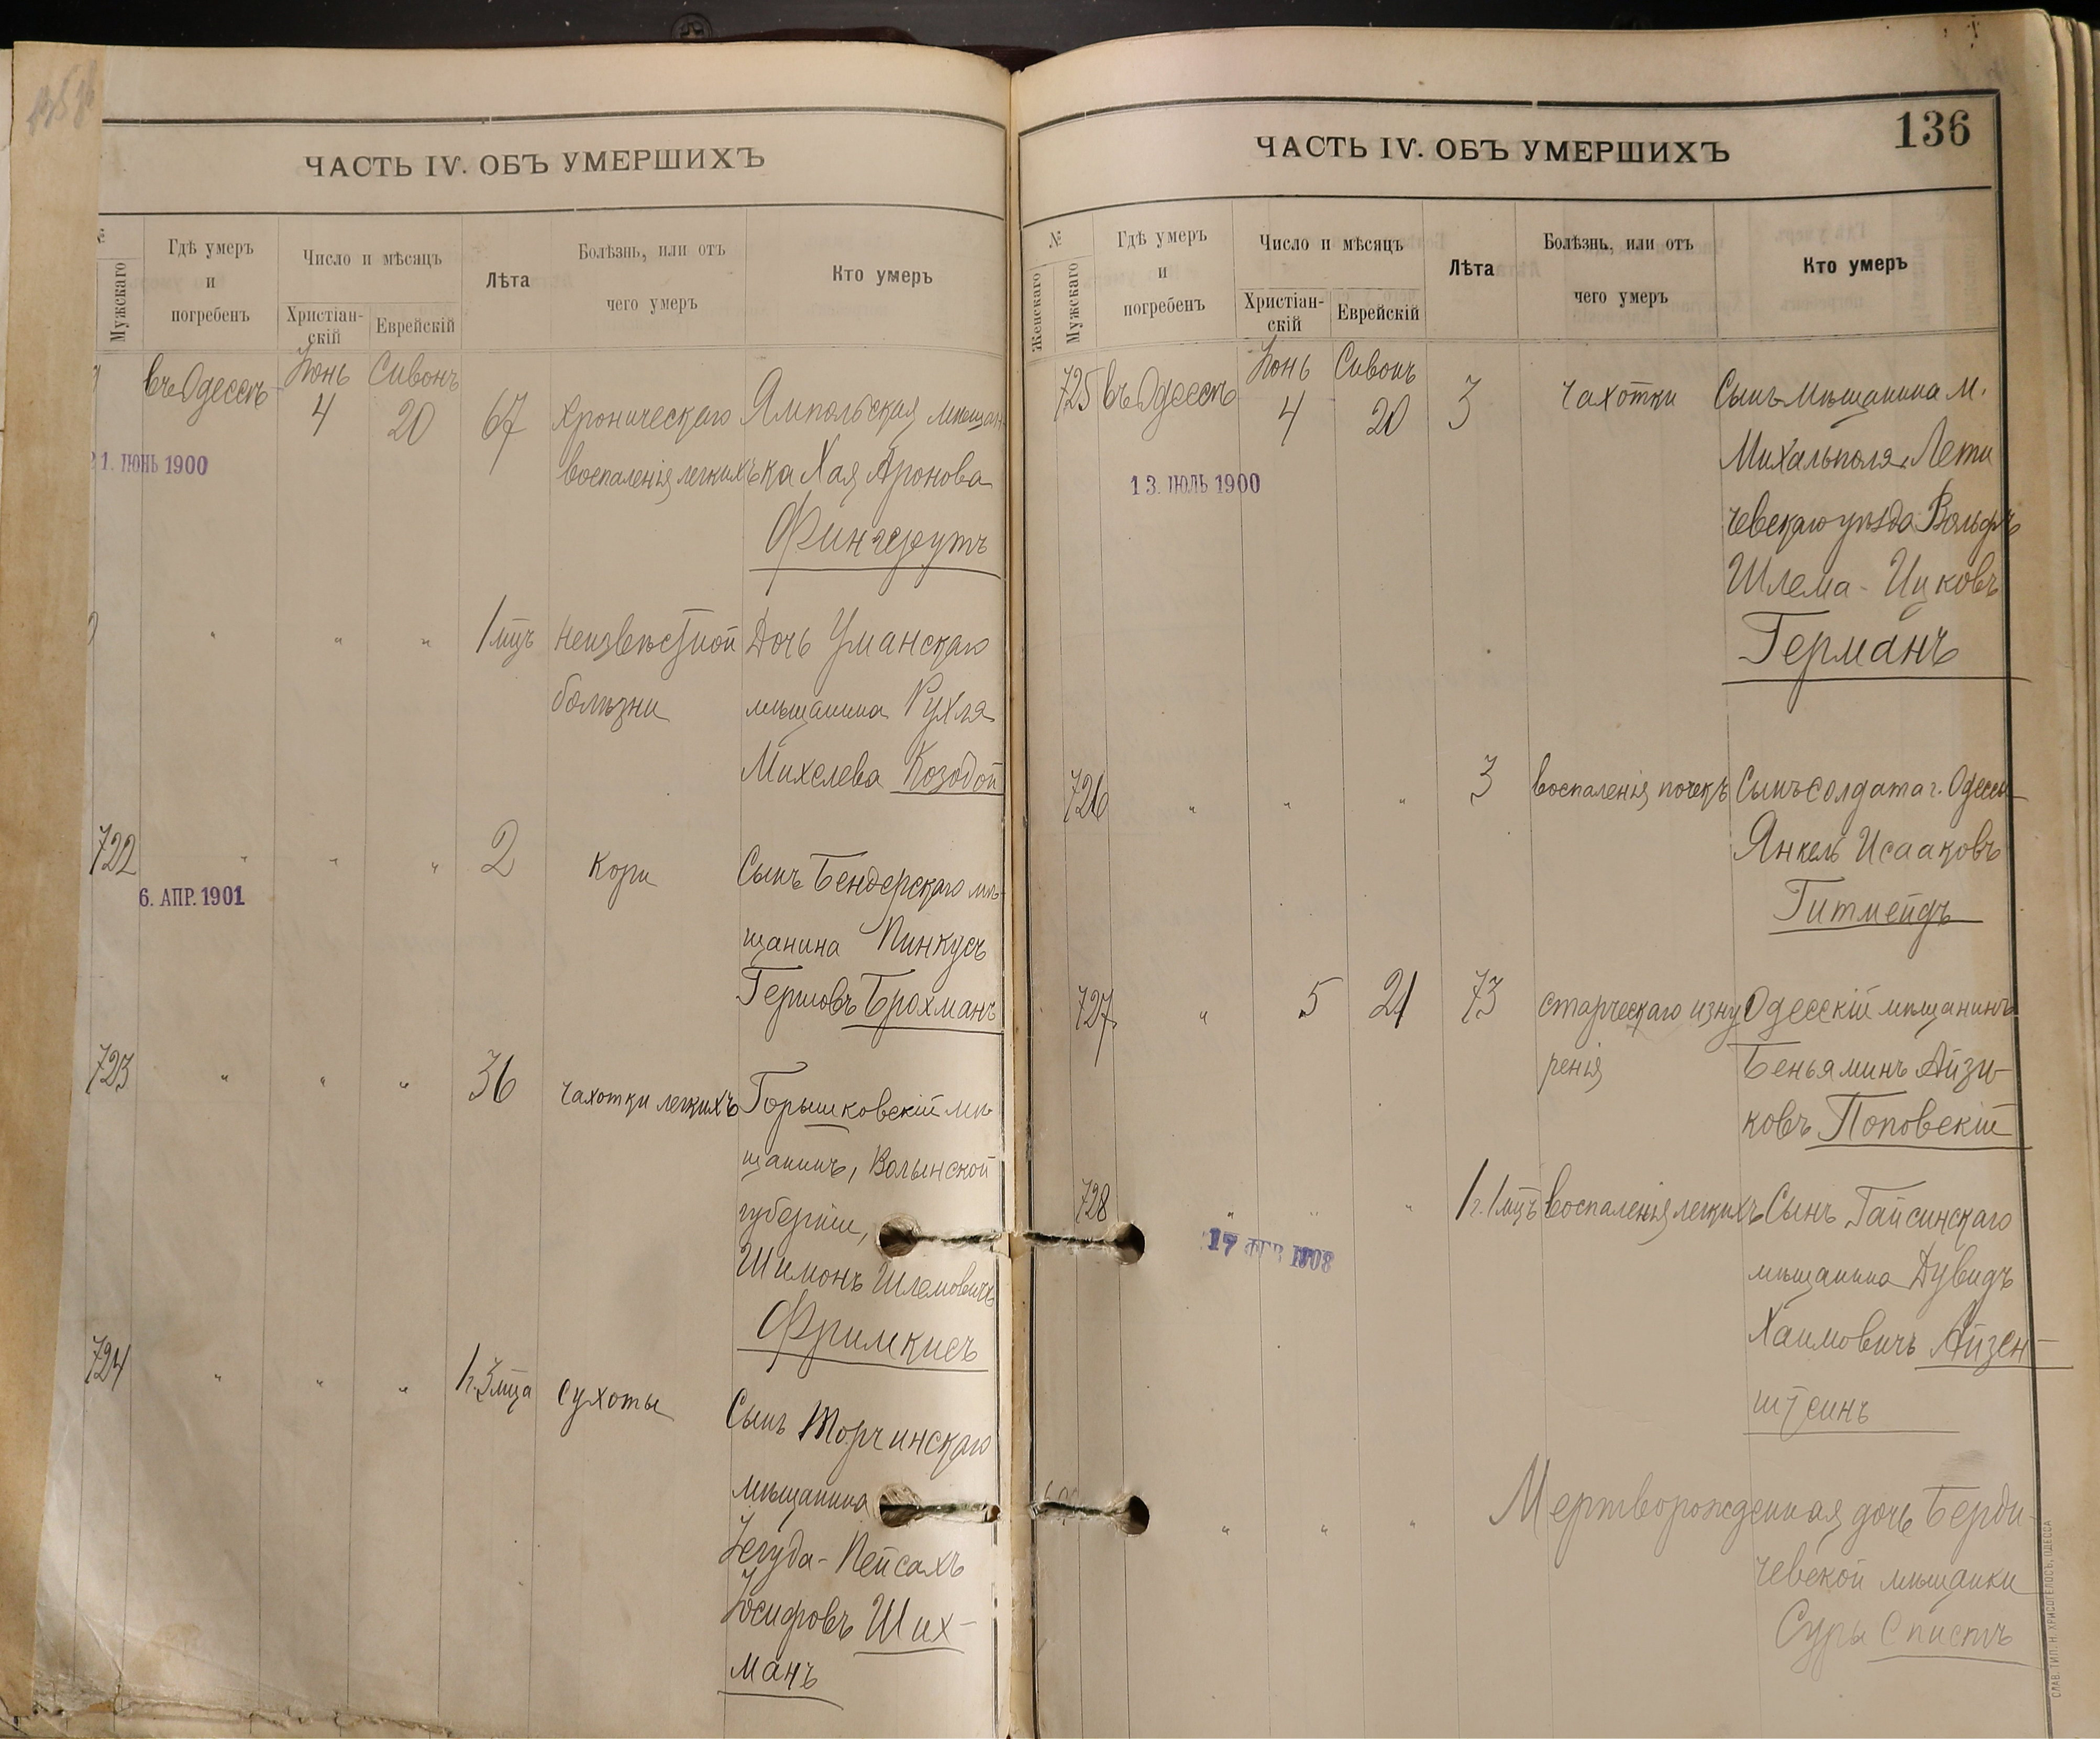 ЧАСТЬ IV. ОБЪ УМЕРШИХЪ
Мужскаго
Гдѣ умеръ
и
погребенъ
Число и мѣсяцъ
Христіан-
скій
Еврейскій
Лѣта
Болѣзнь, или отъ
чего умеръ
Кто умеръ
въ Одессѣ
Іюнь
4
Сивонъ
20
67
Хроническаго
воспаленія легкихъ
Ямпольская мѣщан
ка Хая Аронова
Фингерутъ
1. ІЮНЬ 1900
" " "
1 мцъ
неизвѣстной
болѣзни
Дочь Уманскаго
мѣщанина Рухля
Михелева Козодой
722
" " "
2
Кори
Сынъ Бендерскаго мѣ-
щанина Пинкусъ
Гершовъ Брохманъ
6. АПР. 1901
723
" " "
36
чахотки легкихъ
Горышковскій мѣ-
щанинъ, Волынской
губерніи,
Шимонъ Шлемовичъ
Фримкисъ
724
" " "
1 г. 3 мца
сухоты
Сынъ Торчинскаго
мѣщанина
Іегуда-Пейсахъ
Іосифовъ Ших-
манъ
ЧАСТЬ IV. ОБЪ УМЕРШИХЪ
136
№
Женскаго
Мужскаго
Гдѣ умеръ
и
погребенъ
Число и мѣсяцъ
Христіан-
скій
Еврейскій
Лѣта
Болѣзнь, или отъ
чего умеръ
Кто умеръ
725
въ Одессѣ
Іюнь
4
Сивонъ
20
3
чахотки
Сынъ мѣщанина м.
Михальполя, Лети
чевскаго уѣзда Вольфъ
Шлема-Ицковъ
Германъ
13. ІЮЛЬ 1900
726
" " "
3
воспаленія почекъ
Сынъ солдата г. Одессы
Янкель Исааковъ
Гитмейдъ
727
"
5
21
73
старческаго изну
ренія
Одесскій мѣщанинъ
Беньяминъ Айзи-
ковъ Поповскій
728
" " "
1 г. 1 мцъ
воспаленія легкихъ
Сынъ Гайсинскаго
мѣщанина Дувидъ
Хаимовичъ Айзен-
штейнъ
17 ФЕВ 1908
" " "
Мертворожденная дочь Берди-
чевской мѣщанки
Суры Спистъ
СЛАВ. ТИП. Н. ХРИСОГЕЛОСЪ, ОДЕССА